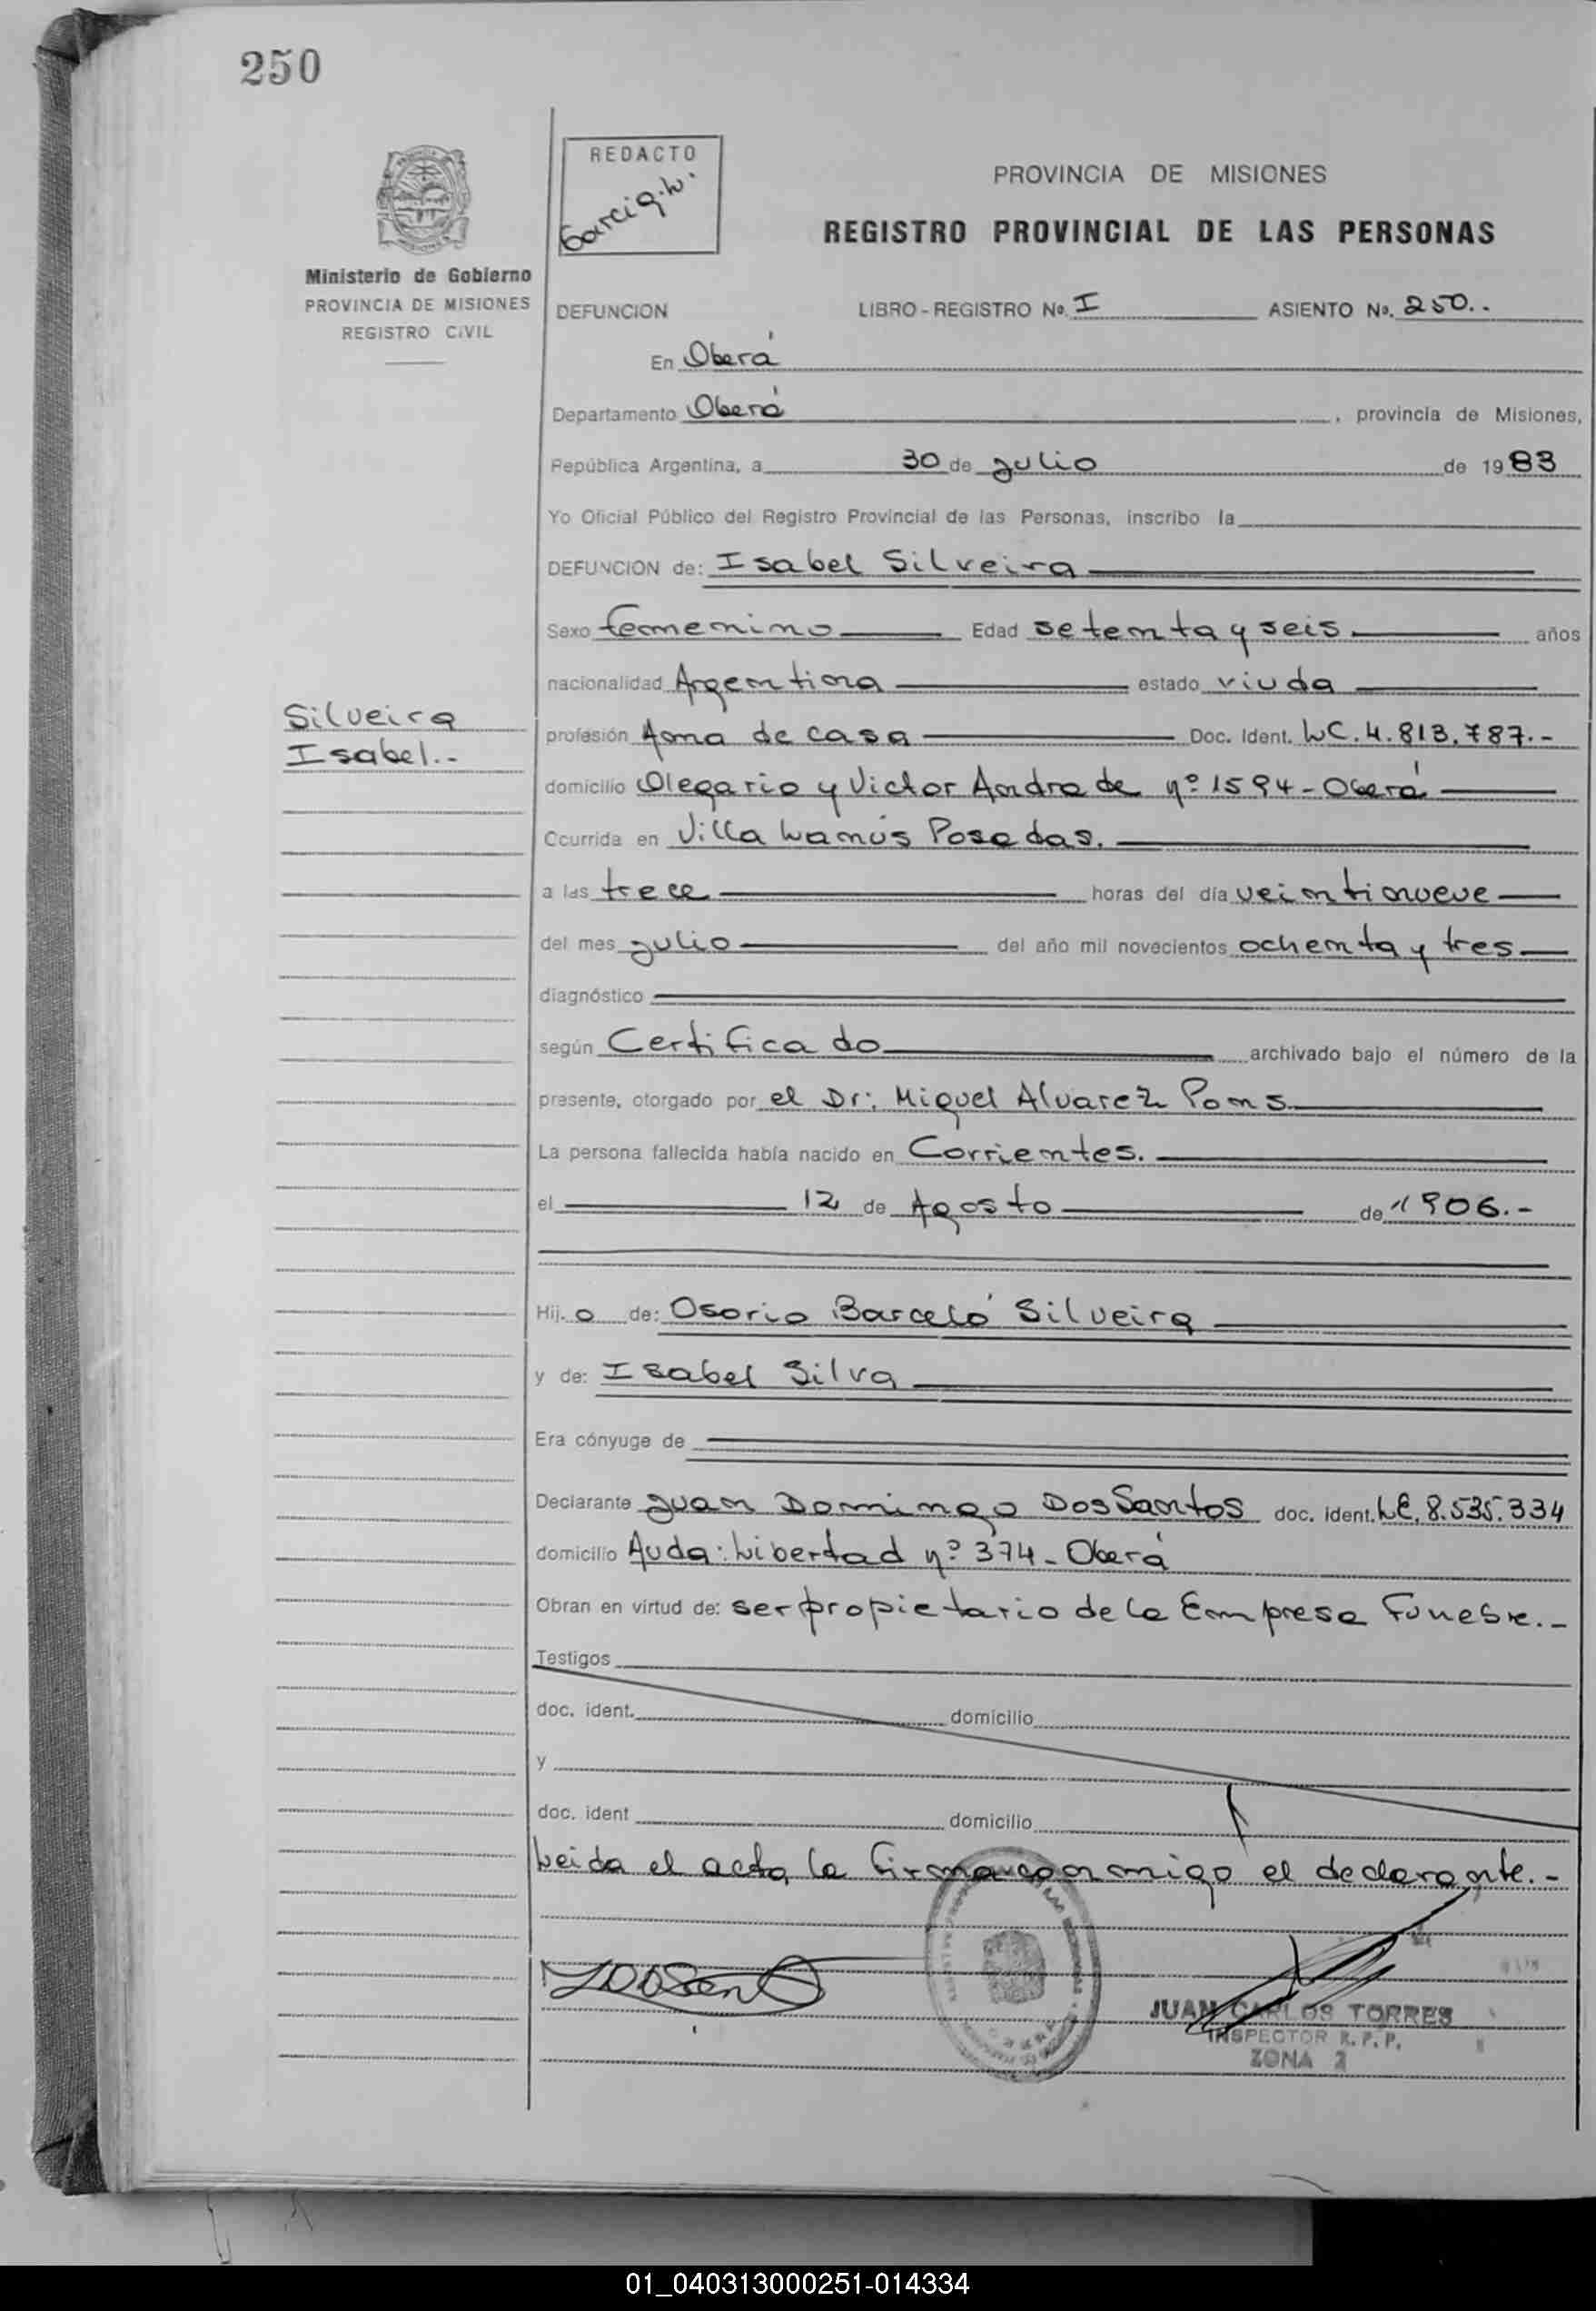 250
REDACTO
Garcia.W.
PROVINCIA DE MISIONES
REGISTRO PROVINCIAL DE LAS PERSONAS
Ministerio de Gobierno
PROVINCIA DE MISIONES
REGISTRO CIVIL
DEFUNCION LIBRO - REGISTRO No. I ASIENTO No. 250..
En Oberá
Departamento Oberá, provincia de Misiones,
República Argentina, a 30 de julio de 1983
Yo Oficial Público del Registro Provincial de las Personas, inscribo la
DEFUNCION de: Isabel Silveira
Sexo femenino Edad setenta y seis años
nacionalidad Argentina estado viuda
Silveira
Isabel.-
profesión Ama de casa Doc. Ident. LC.4.813.787.-
domicilio Olegario y Victor Andrade nº 1594-Oberá
Ocurrida en Villa Lanús Posadas.
a las trece horas del día veintinueve
del mes julio del año mil novecientos ochenta y tres
diagnóstico
según Certificado archivado bajo el número de la
presente, otorgado por el Dr: Miguel Alvarez Pons
La persona fallecida había nacido en Corrientes.
el 12 de Agosto de 1906.-
Hij.o de: Osorio Barceló Silveira
y de: Isabel Silva
Era cónyuge de
Declarante Juan Domingo DosSantos doc. ident. LE.8.535.334
domicilio Avda: Libertad nº 374-Oberá
Obran en virtud de: ser propietario de la Empresa Funebre.-
Testigos
doc. ident. domicilio
y
doc. ident domicilio
Leida el acta la firma conmigo el declarante.-
JUAN CARLOS TORRES
INSPECTOR R.P.P.
ZONA 2
01_040313000251-014334